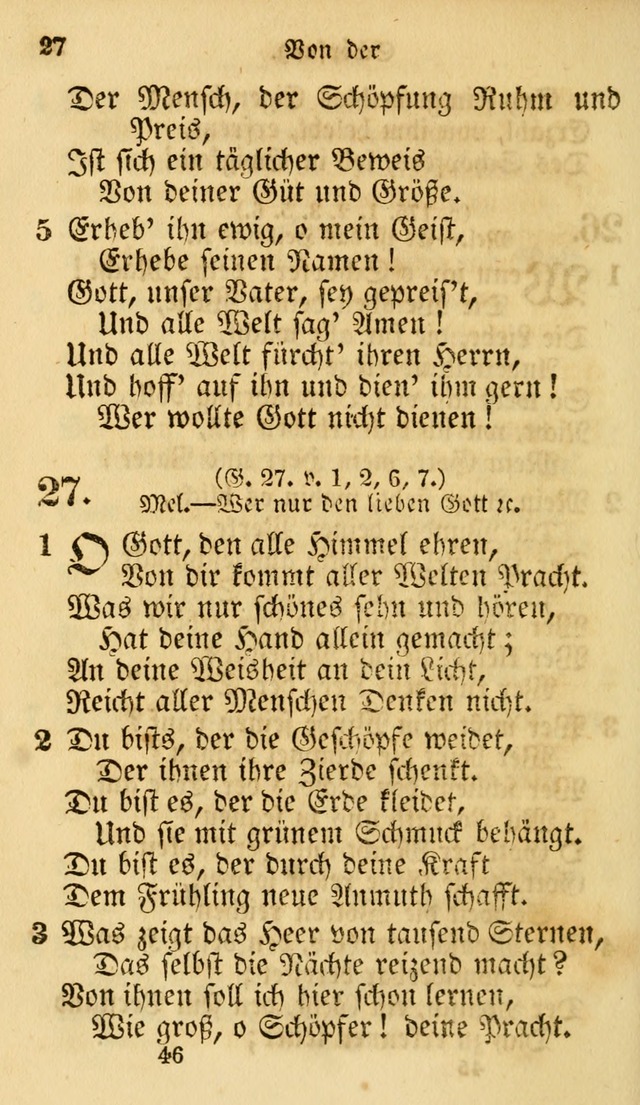 27 Von der
Der Mensch, der Schöpfung Ruhm und
Preis,
Ist sich ein täglicher Beweis
Von deiner Güt und Größe.
5 Erheb' ihn ewig, o mein Geist,
Erhebe seinen Namen!
Gott, unser Vater, sey gepreis't,
Und alle Welt sag' Amen!
Und alle Welt fürcht' ihren Herrn,
Und hoff' auf ihn und dien' ihm gern!
Wer wollte Gott nicht dienen!
27. (G. 27. v. 1, 2, 6, 7.)
Mel.—Wer nur den lieben Gott ꝛc.
1 O Gott, den alle Himmel ehren,
Von dir kommt aller Welten Pracht.
Was wir nur schönes sehn und hören,
Hat deine Hand allein gemacht;
An deine Weisheit an dein Licht,
Reicht aller Menschen Denken nicht.
2 Du bists, der die Geschöpfe weidet,
Der ihnen ihre Zierde schenkt.
Du bist es, der die Erde kleidet,
Und sie mit grünem Schmuck behängt.
Du bist es, der durch deine Kraft
Dem Frühling neue Anmuth schafft.
3 Was zeigt das Heer von tausend Sternen,
Das selbst die Nächte reizend macht?
Von ihnen soll ich hier schon lernen,
Wie groß, o Schöpfer! deine Pracht.
46